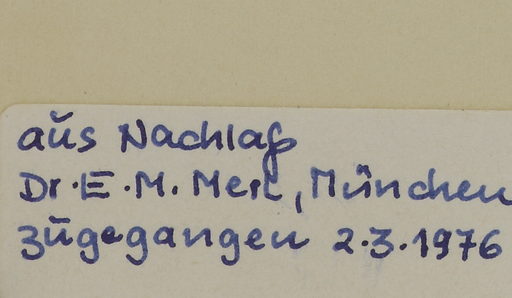 aus Nachlaß
Dr. E. M. Merl, München
zugegangen 2.3.1976